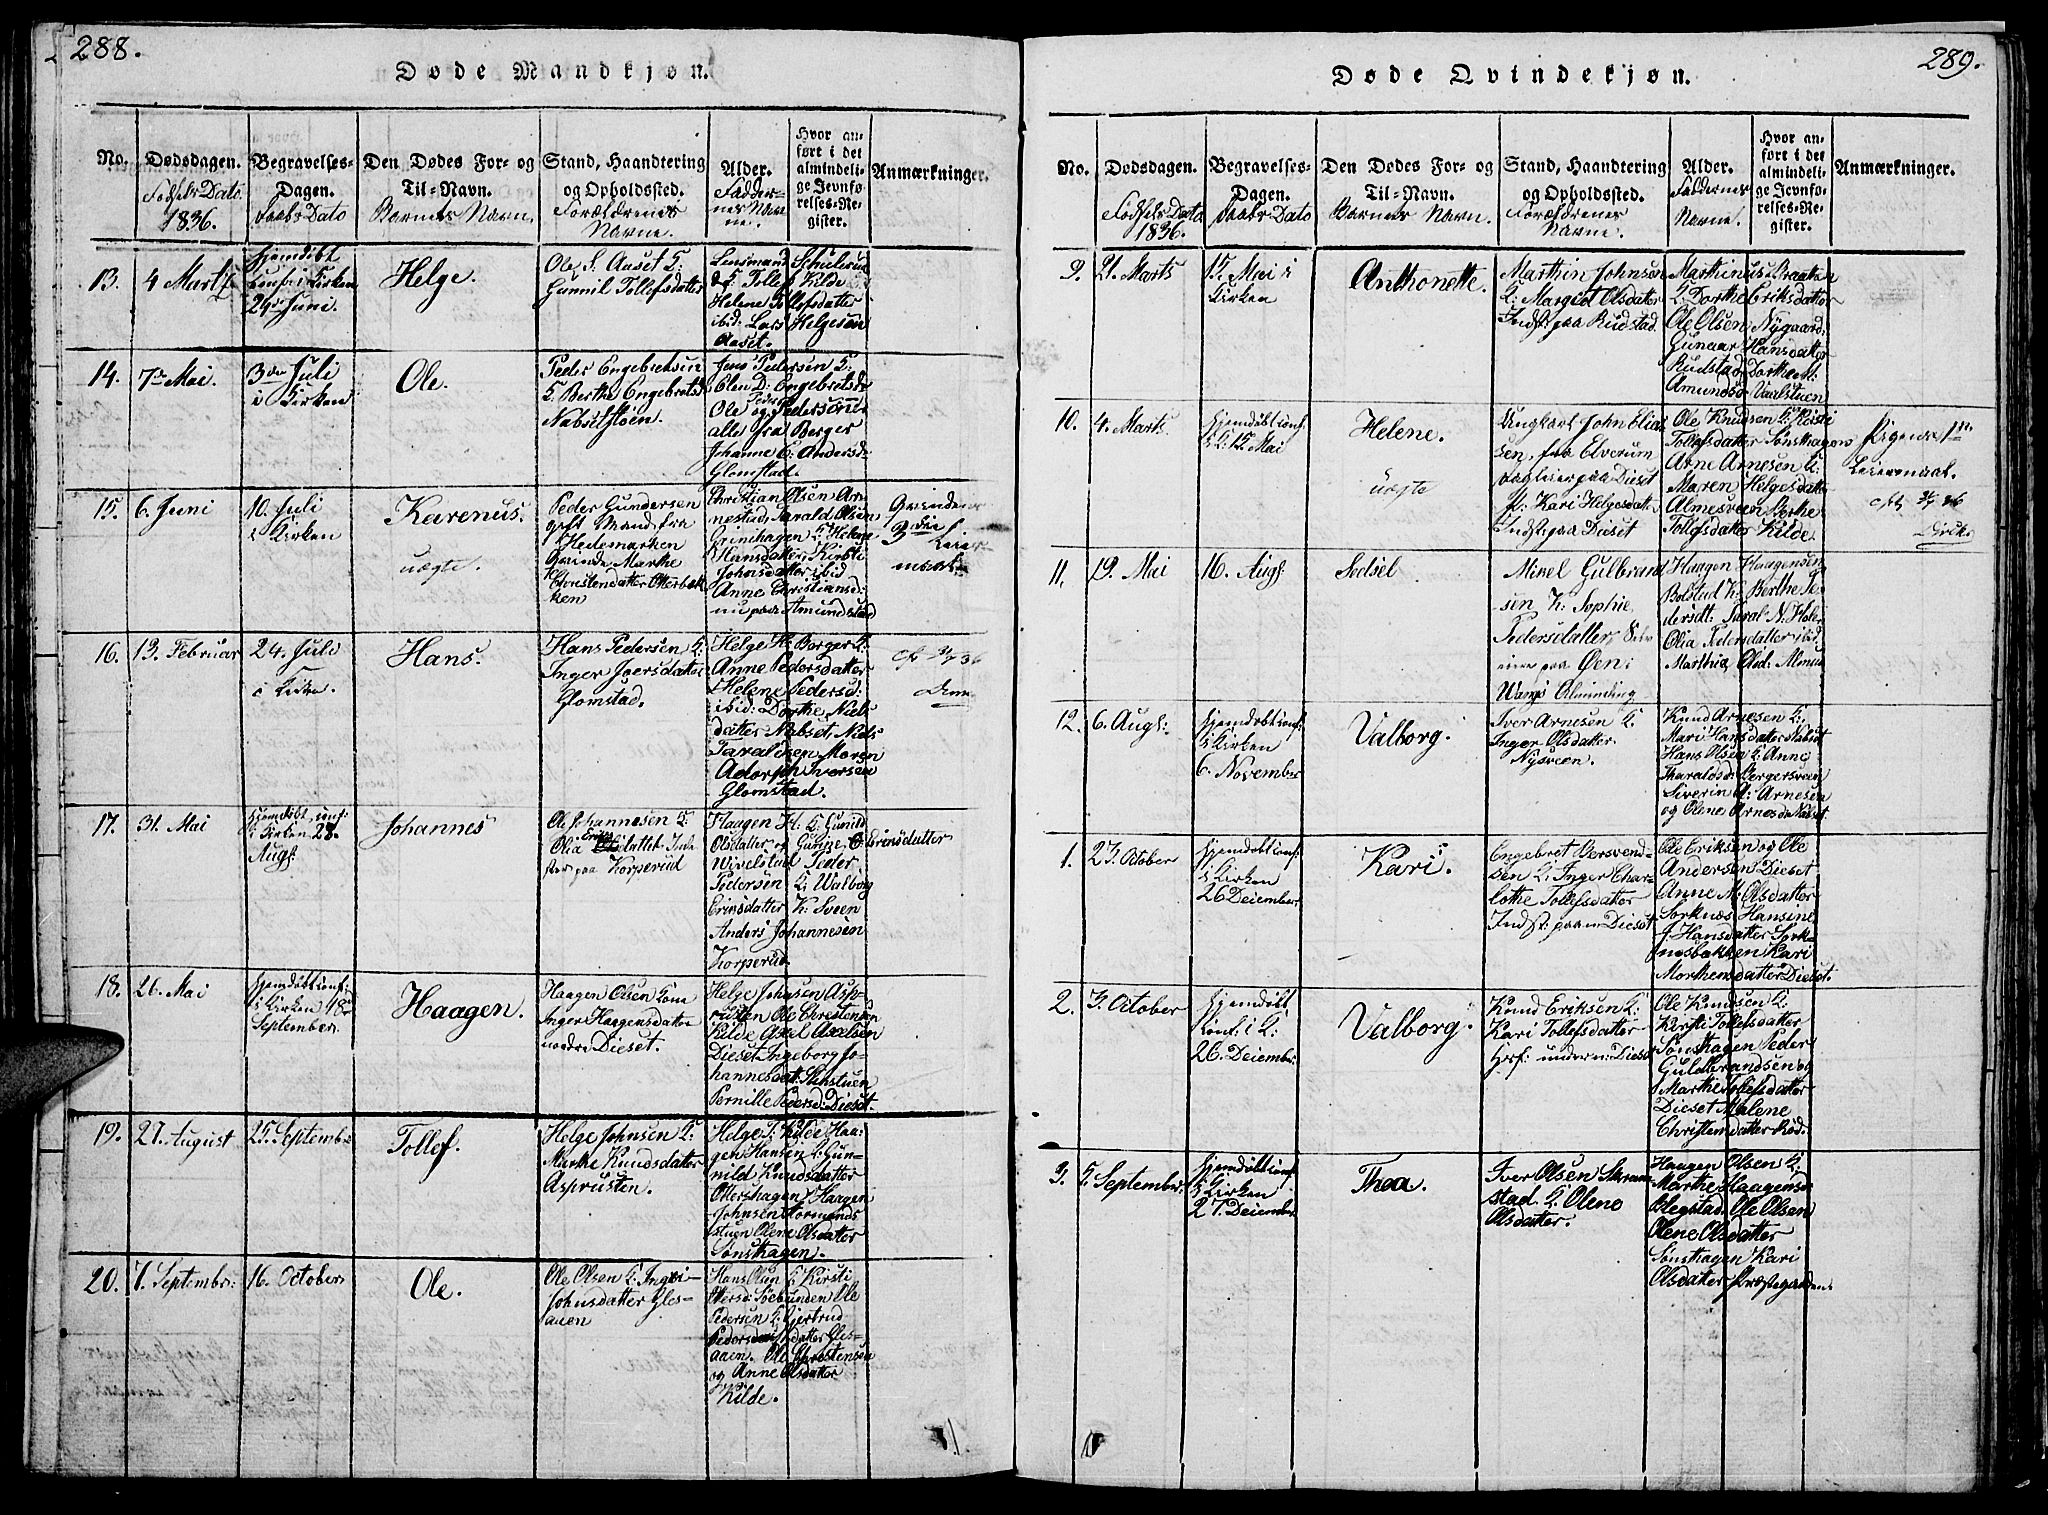 288.
Døde Mandkjøn.
No.
Dødsdagen.
Fødsels Dato
1836.
Begravelses-
Dagen.
Daabs Dato
Den Dødes For- og
Til-Navn.
Barnets Navn.
Stand, Haandtering
og Opholdssted.
Forældrenes
Navne.
Alder.
Fadder-
nes Nav-
ne.
Hvor an-
ført i det
almindeli-
ge Jevnfø-
relses-Re-
gister.
Anmærkninger.
13.
4 Marts
hjemdøbt
i Kirken
24de Juni.
Helge.
Ole S. Aaset K.
Gunnil Tollefsdatter
Lensmand Schulerud
Tollef Kilde
Helene Tollefsdatter
ibid: Lars Helgesen
Aaset.
14.
7de Mai.
3die Juli
i Kirken
Ole.
Peder Engebretsen
K Berthe Engebretsd
Nabsetfloen.
Jens Pedersen K.
Elen D: Engebretsd
Ole og Peder Pedersønner
alle fra Berger
Johanne C: Andersd:
Glomstad.
15.
6. Juni
10. Juli
i Kirken
Karenus.
uægte.
Peder Gundersen
gift Mand fra
Hedemarken
Qvinde Marthe
Christensdatter Otterbæk
ken
Christian Olsen Ar-
nestad, Tarald Olsen
Grinihagen K: Helene
Hansdatter, Kirsti
Johnsdatter ibid
Anne Christiansd:
nu paa Amundstad
Qvindens
3die Leier-
maal.
16.
13. Februar
24. Juli
i Kirken.
Hans.
Hans Pedersen K:
Inger Joersdatter
Glomstad.
Helge H. Berger K:
Anne Pedersdatter
Helene Pedersd:
ibid: Dorthe Niels
datter Nabset, Niels
Taraldsen Moren
Adorph Iversen
Glomstad.
17.
31. Mai
hjemdøbt, conf:
i Kirken 28.
Augs:
Johannes
Ole Johannesen K:
Olia Eriksdatter Ind-
ster paa Korperud
Haagen H. K: Gunild
Olsdatter og Gunne E: Erinsdatter
Wivelstad Peder
Pedersen K: Walborg
Erinsdatter K: Sveen
Anders Johannesen
Korperud.
18.
26. Mai
hjemdøbt conf:
i Kirken 18de
September.
Haagen.
Haagen Olsen Kone
Inger Haagensdatter
nordre Dieset.
Helge Johnsen Asp-
rusten Ole Christensen
Kilde Axel Axelsen
Dieset Ingeborg Jo-
hannesdatt: Stenstuen
Pernille Pedersd: Dieset.
19.
27. August
25. Septembr
Tollef.
Helge Johnsen K:
Marthe Knudsdatter
Asprusten.
Helge T: Kilde Haa-
gen Hansen K: Gun-
nild Knudsdatter
Ottershagen, Haagen
Johnsen Tormonds
stuen Olene Olsdatter
Sønsthagen.
20.
7. Septembr:
16. October
Ole.
Ole Olsen K: Ingri
Johnsdatter Gles-
aaen
Hans Olsen K: Kirsti
Ottersd: Søebunden Ole
Pedersen K: Gjertrud
Pedersdatter Gles-
aaen. Ole Christensen
og Anne Olsdatter
Kilde.
289.
Døde Qvindekjøn.
No.
Dødsdagen.
Fødsels Dato
1836.
Begravelses-
Dagen.
Daabs Dato
Den Dødes For- og
Til-Navn.
Barnets Navn.
Stand, Haandtering
og Opholdssted.
Forældrenes
Navne.
Alder.
Faddernes
Navne.
Hvor an-
ført i det
almindeli-
ge Jevnfø-
relses-Re-
gister.
Anmærkninger.
9.
21. Marts
15. Mai i
Kirken
Anthonette.
Marthin Johnsen
K: Margid Olsdatter
Indst: paa Rudstad.
Marthinus Braaten
K: Dorthe Eriksdatter
Ole Olsen Nygaard:
Gunaar Hansdatter
Rudstad, Dorthe M.
Amundsd Vaalstuen
10.
4. Marts
hjemdøbt conf:
i K: 15. Mai
Helene.
uægte
Ungkarl John Elia-
sen, fra Elverum
logerer paa Dieset
P. Kari Helgesdatter
Indst: paa Dieset
Ole Knudsen K: Kisti
Tollefsdatter Sønsthagen
Arne Arnesen K:
Maren Helgesdatter
Almesveen Berthe
Tollefsdatter Kilde
Pigens 1ste
Leiermaal.
11.
19. Mai
16. Augs:
Sedsel
Mikel Gulbrand
sen K: Sophie
Pedersdatter, Selv
eiere paa Øen i
Wangs Alminding
Haagen Haagensen
Bolstad K: Berthe Pe-
dersdt: Taral N: Holen
Olia Pedersdatter ibid
Marthia Olsd: Almun
12.
6. Augs:
hjemdøbt conf:
i Kirken
6. November
Valborg.
Iver Arnesen K:
Inger Olsdatter
Nysveen.
Knud Arnesen K:
Mari Hansdatter Nabset
Hans Olsen K: Anne
Tharaldsd: Bergersveen
Siverin A: Arnesen
og Olene Arnesd: Nabset.
1.
23. October
hjemdøbt conf:
i Kirken
26 Deiember
Kari.
Engebret Bersvend-
sen K: Inger Char-
lothe Tollefsdatter
Indst: paa n: Dieset
Ole Eriksen og Ole
Andersen Dieset
Anne M: Olsdatter
Sorknæs Hansine
J. Hansdatter Sork-
næsbakken Kari
Morthensdatter Dieset.
2.
3. October
hjemdøbt
conf: i K:
26. Deiember
Valborg.
Knud Eriksen K:
Kari Tollefsdatter
Hrf: under n: Dieset
Ole Knudsen K:
Kirsti Tollefsdatter
Sønsthagen Peder
Guldbrandsen og
Marthe Tollefsdatter
Dieset Malene
Christensdatter Rød.
3.
5. September
hjemdøbt conf:
i Kirken
27. Deiember
Thea.
Iver Olsen Skram-
stad K: Olene
Olsdatter.
Haagen Olsen K:
Marthe Haagensd
Blegstad, Ole Olsen
Olene Olsdatter
Sønsthagen Kari
Olsdatter Præstegaarden.